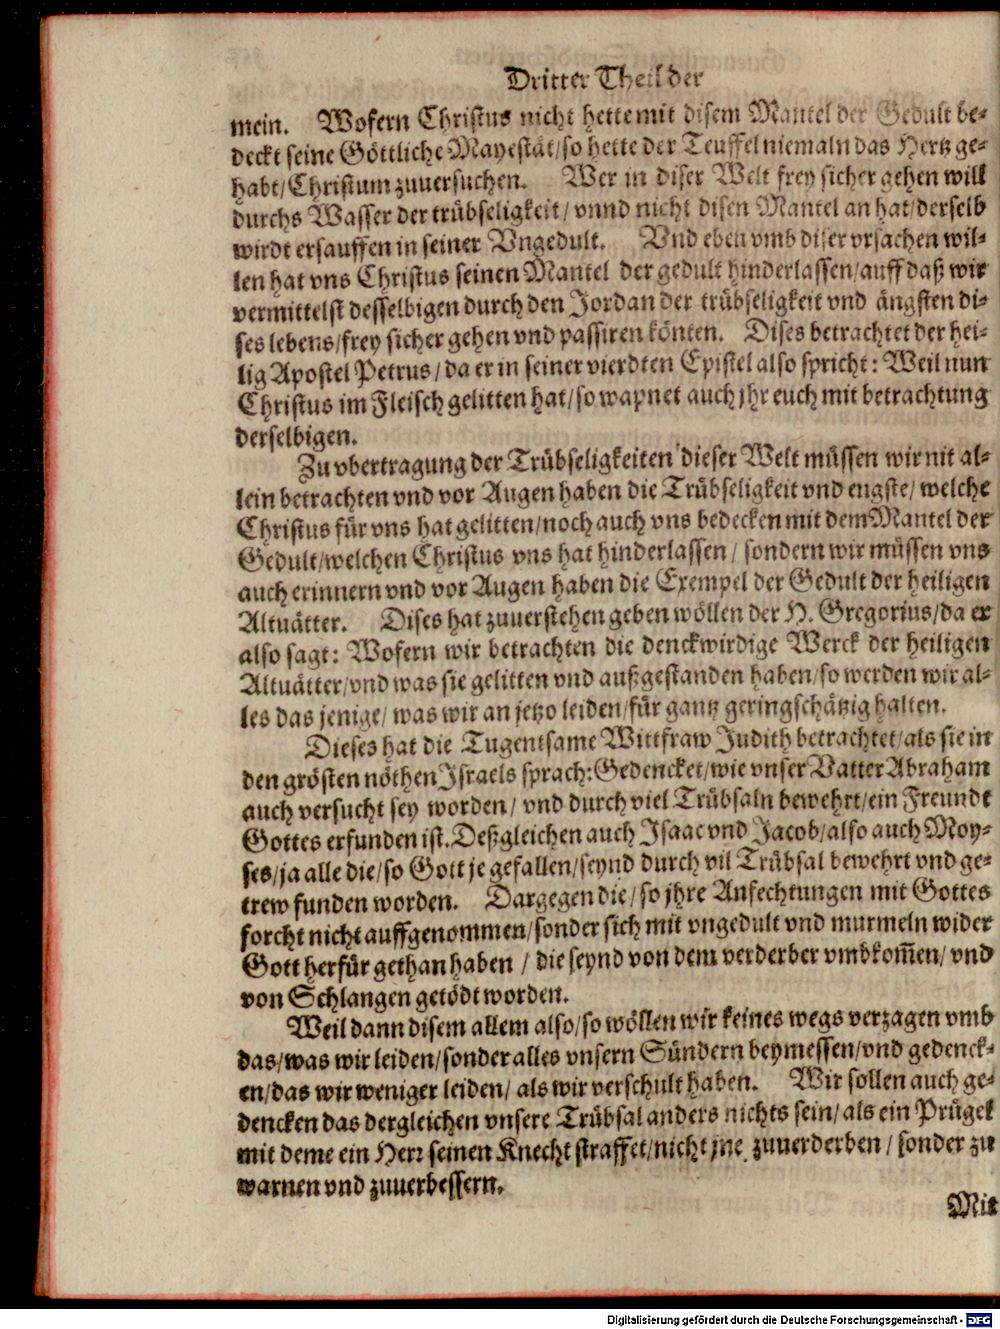 Dritter Theil der
mein. Wofern Christus nicht hette mit disem Mantel der Gedult be-
deckt seine Göttliche Mayestät/so hette der Teuffel niemaln das Hertz ge-
habt/Christum zuuersuchen. Wer in diser Welt frey sicher gehen will
durchs Wasser der trübseligkeit/ vnnd nicht disen Mantel an hat/derselb
wirdt ersauffen in seiner Vngedult. Vnd eben vmb diser vrsachen wil-
len hat vns Christus seinen Mantel der gedult hinderlassen/auff daß wir
vermittelst desselbigen durch den Jordan der trübseligkeit vnd ängsten di-
ses lebens/frey sicher gehen vnd passiren könten. Dises betrachtet der hei-
lig Apostel Petrus/da er in seiner vierdten Epistel also spricht: Weil nun
Christus im Fleisch gelitten hat/so wapnet auch jhr euch mit betrachtung
derselbigen.
Zu vbertragung der Trübseligkeiten dieser Welt müssen wir nit al-
lein betrachten vnd vor Augen haben die Trübseligkeit vnd engste/ welche
Christus für vns hat gelitten/noch auch vns bedecken mit dem Mantel der
Gedult/welchen Christus vns hat hinderlassen/ sondern wir müssen vns
auch erinnern vnd vor Augen haben die Exempel der Gedult der heiligen
Altuätter. Dises hat zuuerstehen geben wöllen der H. Gregorius/da er
also sagt: Wofern wir betrachten die denckwirdige Werck der heiligen
Altuätter/vnd was sie gelitten vnd außgestanden haben/so werden wir al-
les das jenige/ was wir an jetzo leiden/für gantz geringschätzig halten.
Dieses hat die Tugentsame Wittfraw Judith betrachtet/als sie in
den grösten nöthen Jsraels sprach: Gedencket/wie vnser Vatter Abraham
auch versucht sey worden/ vnd durch viel Trübsaln bewehrt/ein Freundt
Gottes erfunden ist. Deßgleichen auch Jsaac vnd Jacob/also auch Moy-
ses/ja alle die/so Gott je gefallen/seynd durch vil Trübsal bewehrt vnd ge-
trew funden worden. Dargegen die/so jhre Anfechtungen mit Gottes
forcht nicht auffgenommen/sonder sich mit vngedult vnd murmeln wider
Gott herfür gethan haben / die seynd von dem verderber vmbkom̃en/ vnd
von Schlangen getödt worden.
Weil dann disem allem also/so wöllen wir keines wegs verzagen vmb
das/was wir leiden/sonder alles vnsern Sündern beymessen/vnd gedenck-
en/das wir weniger leiden/ als wir verschult haben. Wir sollen auch ge-
dencken das dergleichen vnsere Trübsal anders nichts sein/als ein Prügel
mit deme ein Herr seinen Knecht straffet/nicht jne zuuerderben/ sonder zu
warnen vnd zuuerbessern.
Mit
Digitalisierung gefördert durch die Deutsche Forschungsgemeinschaft - DFG